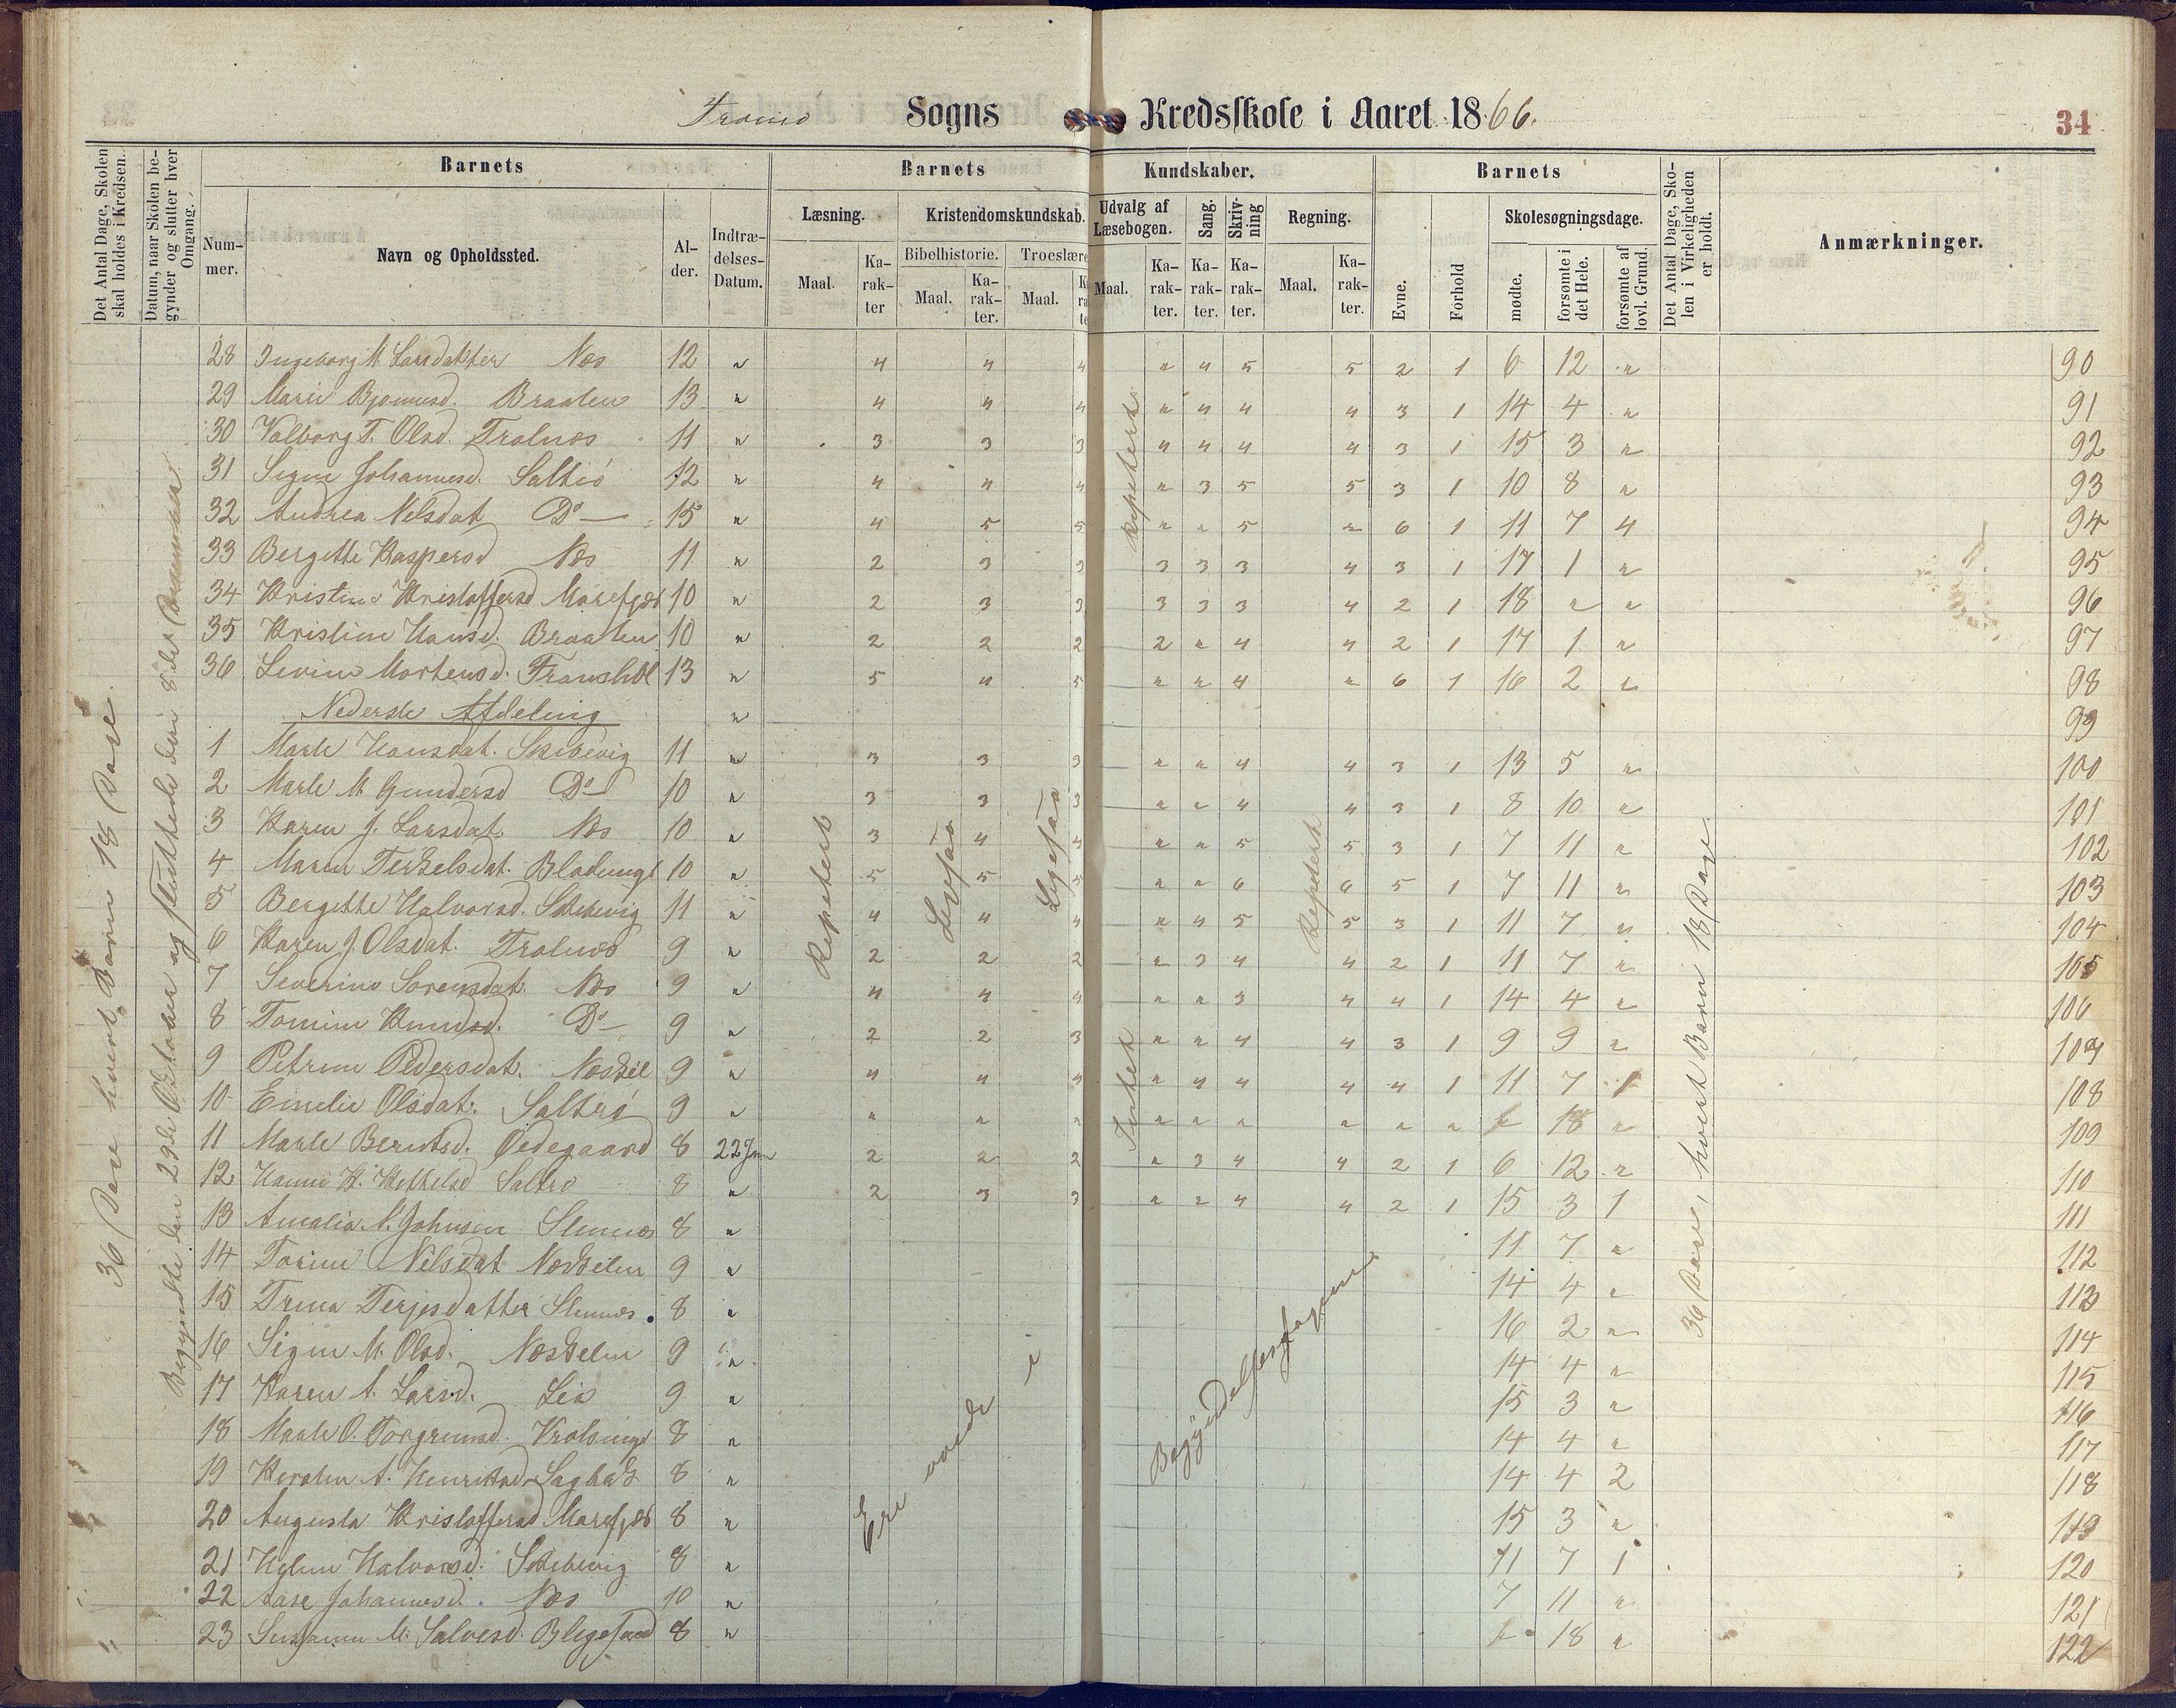 Sogns Kredsskole i Aaret 1866. 34
Det Antal Dage, Skolen skal holdes i Kredsen.
Datum, naar Skolen begynder og slutter hver Omgang.
Barnets Barnets Kundskaber. Barnets
Det Antal Dage, Skolen i Virkeligheden er holdt.
Anmærkninger.
Nummer. Navn og Opholdssted. Alder. Indtrædelses-Datum.
Læsning. Kristendomskundskab. Udvalg af Læsebogen. Sang. Skrivning Regning. Evne. Forhold Skolesøgningsdage.
Bibelhistorie. Troeslære
Maal. Karakter Maal. Karakter. Maal. Maal. Karakter. Karakter. Karakter. Maal. Karakter. mødte. forsømte i det Hele. forsømte af lovl. Grund.
28 Ingeborg M. Larsdatter Næs 12 " 4 4 4 " 4 5 5 2 1 6 12 " 90
29 Maren Bjornsd. Braaten 13 " 4 4 4 " 4 4 4 3 1 14 4 " 91
30 Valborg T. Olsd. Tralnæs 11 " 3 3 3 4 4 4 4 3 1 15 3 " 92
31 Signe Johannesd. Saltrø 12 " 4 4 4 " 3 5 5 3 1 10 8 " 93
32 Andrea Nilsdat Do 15 " 4 5 5 " " 5 " 6 1 11 7 4 94
33 Bergette Kaspersd Næs 11 " 2 3 3 3 3 3 4 3 1 17 1 " 95
34 Kristine Kristoffersd Marefjæd 10 " 2 3 3 3 3 3 4 2 1 18 " " 96
35 Kristine Hansd. Braaten 10 " 2 2 2 2 " 4 4 2 1 17 1 " 97
36 Levine Mortensd. 13 " 5 4 5 " " 4 " 6 1 16 2 " 98
Nederste Afdeling " 99
1 Marte Hansdat. Skibevig 11 " 3 3 3 " " 4 4 3 1 13 5 " 100
2 Marte M. Gundersd Do 10 " 3 3 3 " " 4 4 3 1 8 10 " 101
3 Karen J. Larsdat. Næs 10 " 3 4 4 " " 5 5 3 1 7 11 " 102
4 Maren Terkelsdat. 10 " 5 5 5 " " 6 6 5 1 7 11 " 103
5 Bergette Halvorsd. Skibevig 11 " 4 4 4 " 4 5 5 3 1 11 7 " 104
6 Karen J. Olsdat. Tralnæs 9 " 2 2 2 " 3 4 4 2 1 11 7 " 105
7 Severine Sorensdat. Næs 9 " 4 4 4 " " 3 4 4 1 14 4 " 106
8 Tomine Knudsd. Do 9 " 2 2 3 " " 4 4 3 1 9 9 " 107
9 Petrine Pedersdat. Næskil 9 " 4 4 4 " 4 4 4 4 1 11 7 1 108
10 Emelie Olsdat. Saltrø 9 " " " " " " " " " " 18 " 109
11 Marte Berntsd. Ødegaard 8 22 Jan 2 2 2 " 3 4 4 2 1 6 12 " 110
12 Hanne K. Kettelsd Saltrø 8 " 2 3 3 " " 4 4 2 1 15 3 1 111
13 Amalia N. Johnsen 8 " 11 7 " 112
14 Torine Nilsdat Næskilen 9 " 14 4 " 113
15 Trina Terjesdatter 8 " 16 2 " 114
16 Signe M. Olsd. Næskilen 9 " 14 4 " 115
17 Karen A. Larsd. Lia 9 " 15 3 " 116
18 Marte O. Torgrimsd. 8 " 14 4 " 117
19 8 " 14 4 2 118
20 Augusta Kristoffersd Marefjæd 8 " 15 3 " 119
21 Helene Halvorsd. Skibevig 8 " 11 7 1 120
22 Aase Johannesd. Næs 10 " 7 11 " 121
23 M. Salvesd. 8 " 18 " 122
36 Dage hvert Barn 18 Dage.
Begyndte den 29de Oktober og sluttede den 8de
Repetert Ligesaa Ligesaa Repeterte Intet Repetert
36 Dage, hvert Barn 18 Dage.
Ere endnu i Begyndelsesgrundene